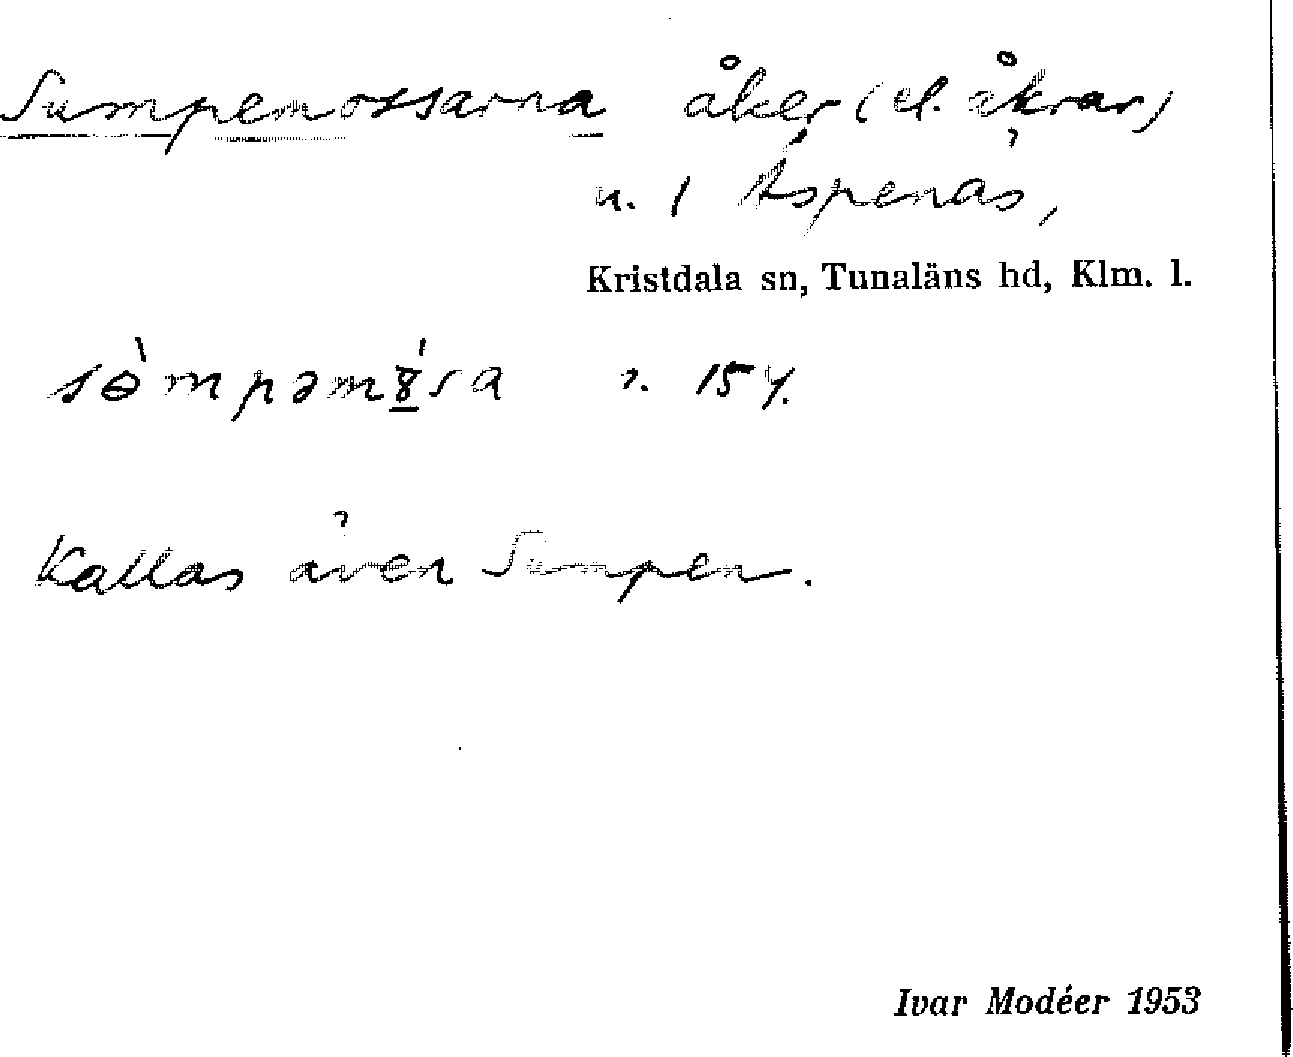 Sumpemossarna åker (el. åkrar)
n. 1 Äspenäs,
Kristdala sn, Tunaläns hd, Klm. l.
sɵ̀mpəmȣ́sa r. 154.
Kallas även Sumpen.
Ivar Modéer 1953